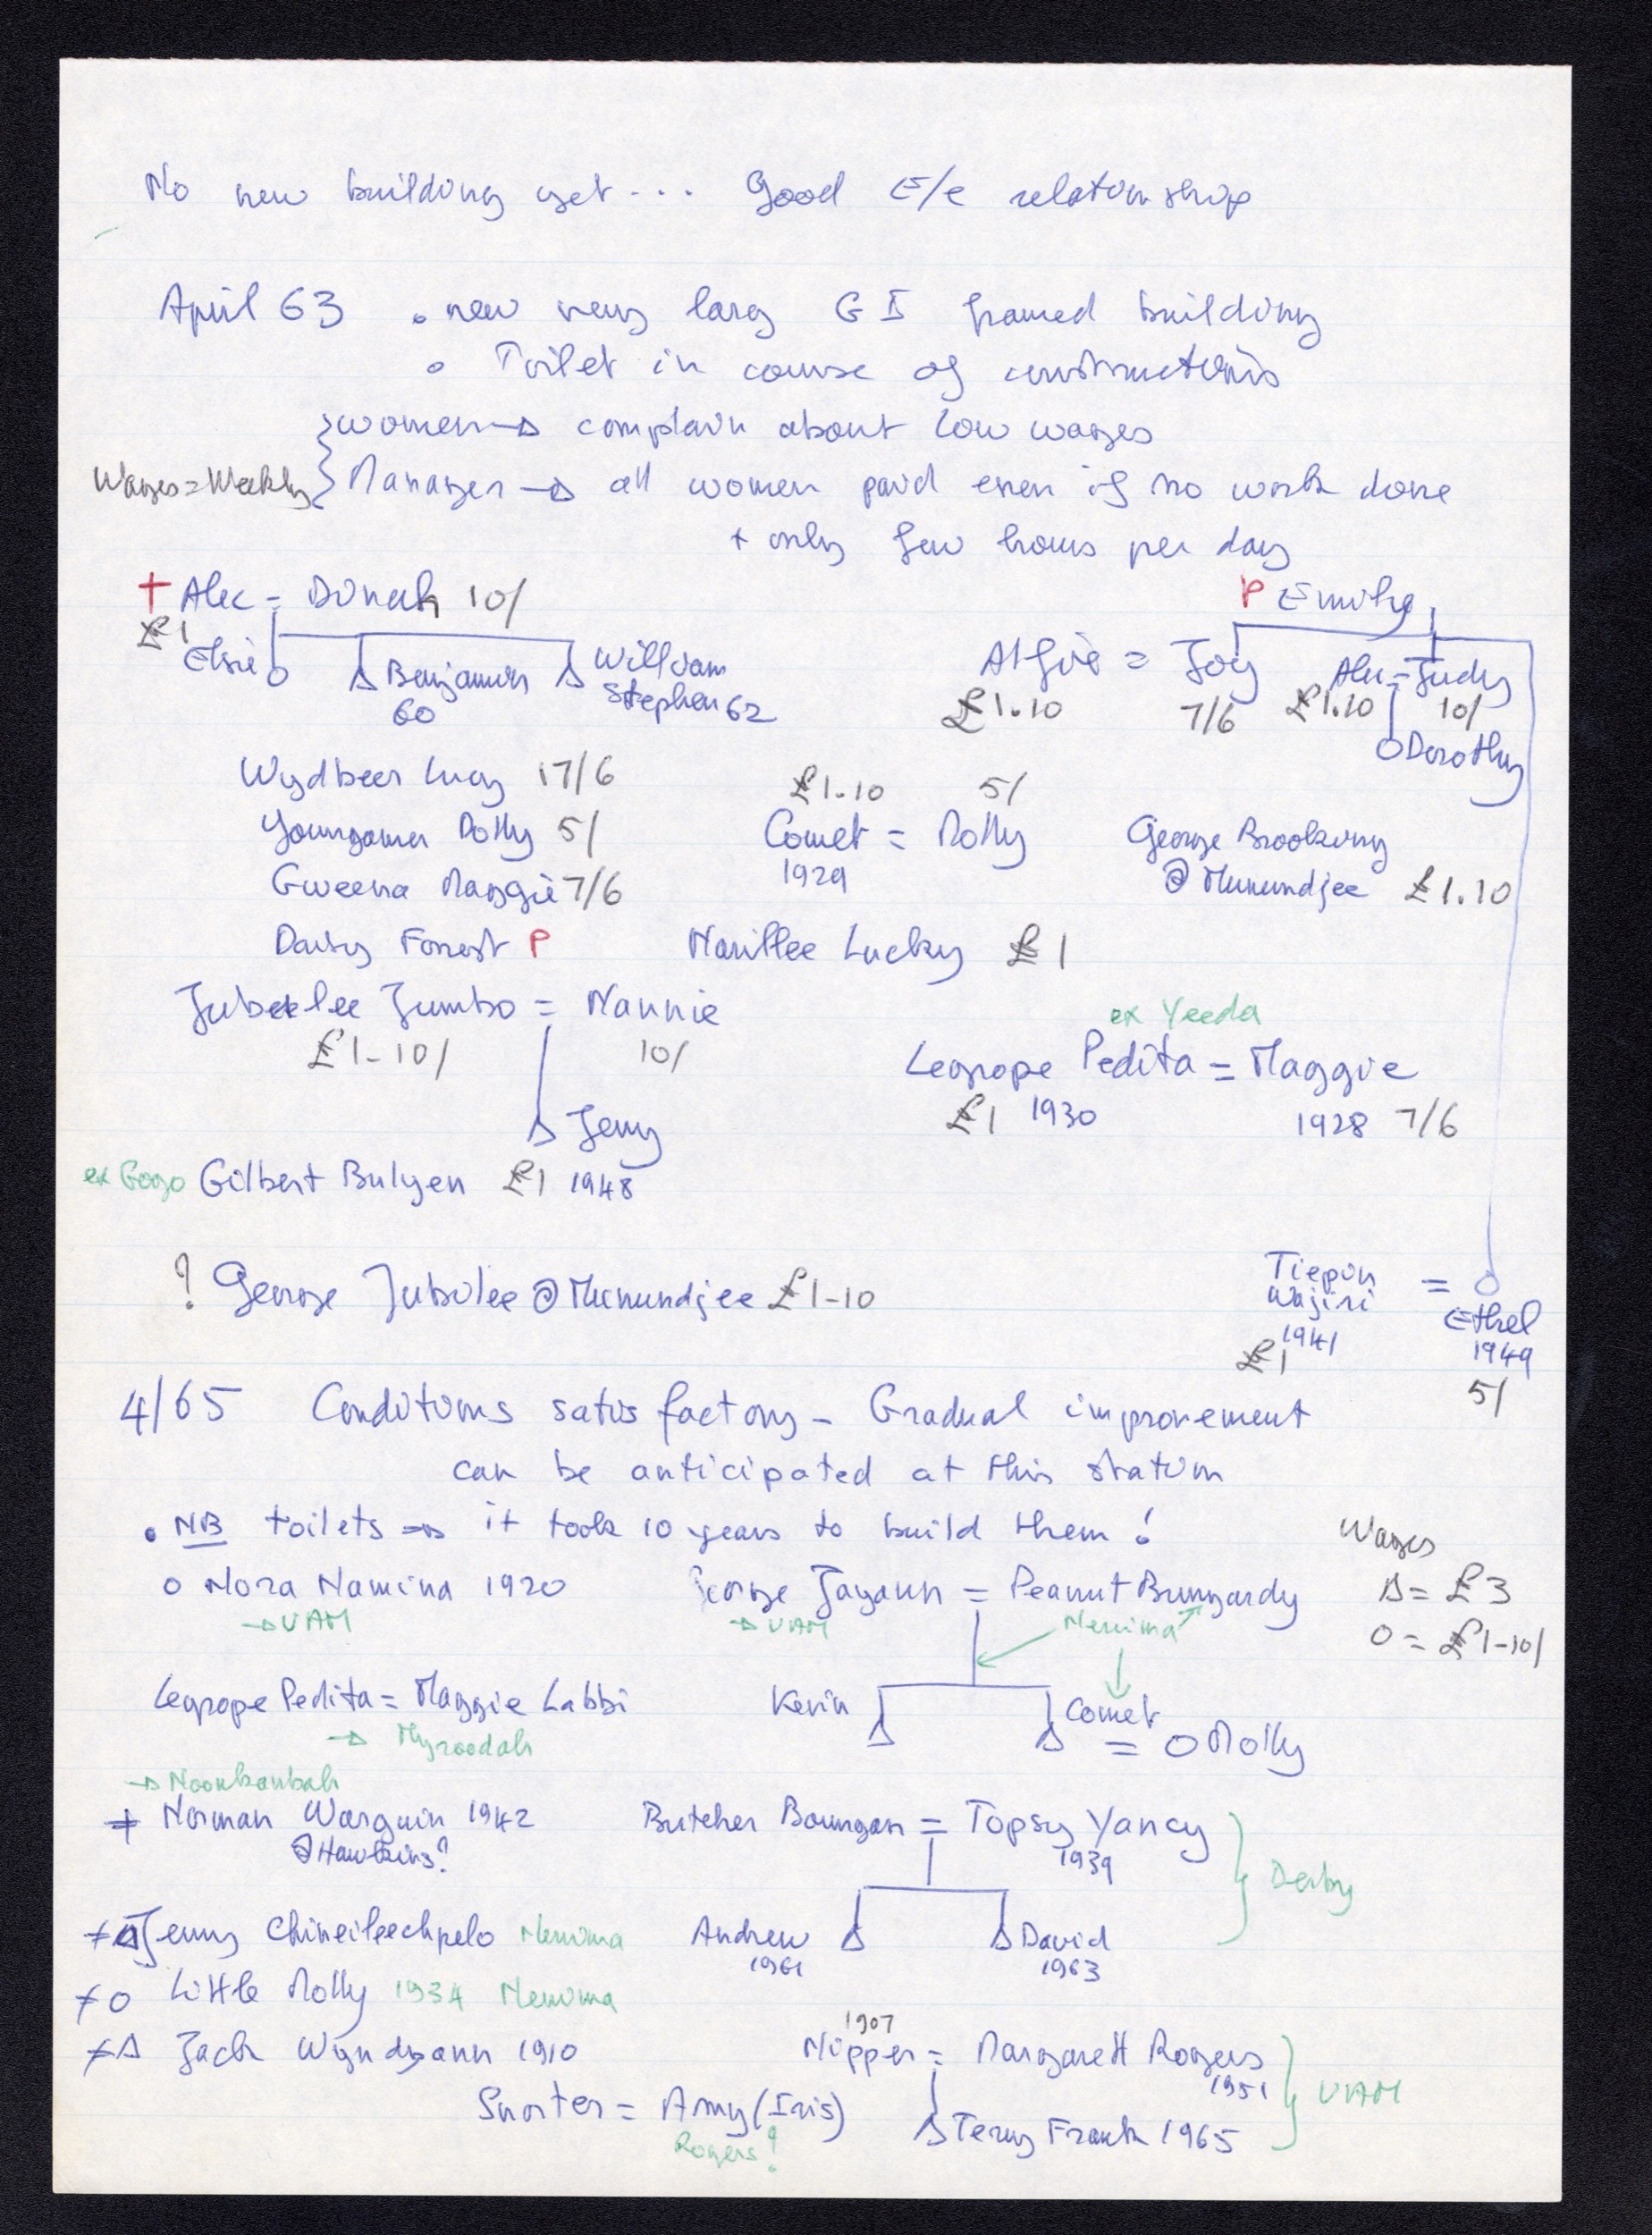 No new building yet... Good E/e relationship
April 63 • new very larg G I framed building
• Toilet in course of constructions
women → complain about low wages
Wages = Weekly
Manager → all women paid even if no work done
+ only few hours per day
+ Alec = Dinah 10/
£1
P Emily
Elsie
Benjamin
60
William
Stephen 62
Algie = Joy
£1.10 7/6
Alec = Judy
£1.10 10/
Dorothy
Wydbeer Lucy 17/6
£1-10 5/
Youngama Dolly 5/
Comet = Molly
1929
George Brooking
@ Munundjee £1.10
Gweena Maggie 7/6
Daisy Forrest P
Marillee Lucky £1
Jubeelee Jumbo = Nannie
£1-10/ 10/
ex Yeeda
Legrope Pedita = Maggie
£1 1930 1928 7/6
Jerry
ex Gogo Gilbert Bulyen £1 1948
? George Jubilee @ Munundjee £1-10
Tiepin
Wajiri = Ethel
1941 1949
£1 5/
4/65 Conditions satisfactory - Gradual improvement
can be anticipated at this station
• NB toilets → it took 10 years to build them!
Wages
Δ = £3
O = £1-10/
O Nora Namina 1920
→ UAM
George Jayann = Peanut Bungardy
→ UAM Nerrima
Legrope Pedita = Maggie Labbi
→ Myroodah
Kevin
Comet
= O Molly
→ Noonkanbah
≠ Norman Warguin 1942
@ Hawkins?
Butcher Boungan = Topsy Yancy
1939
Derby
≠ Δ Jenny Chineileechpelo Nerrima
Andrew
1961
David
1963
≠ O Little Molly 1934 Nerrima
≠ Δ Jack Wyndyann 1910
1907
Nipper = Margarett Rogers
1951
UAM
Snorter = Amy (Iris)
Rogers?
Terry Frank 1965